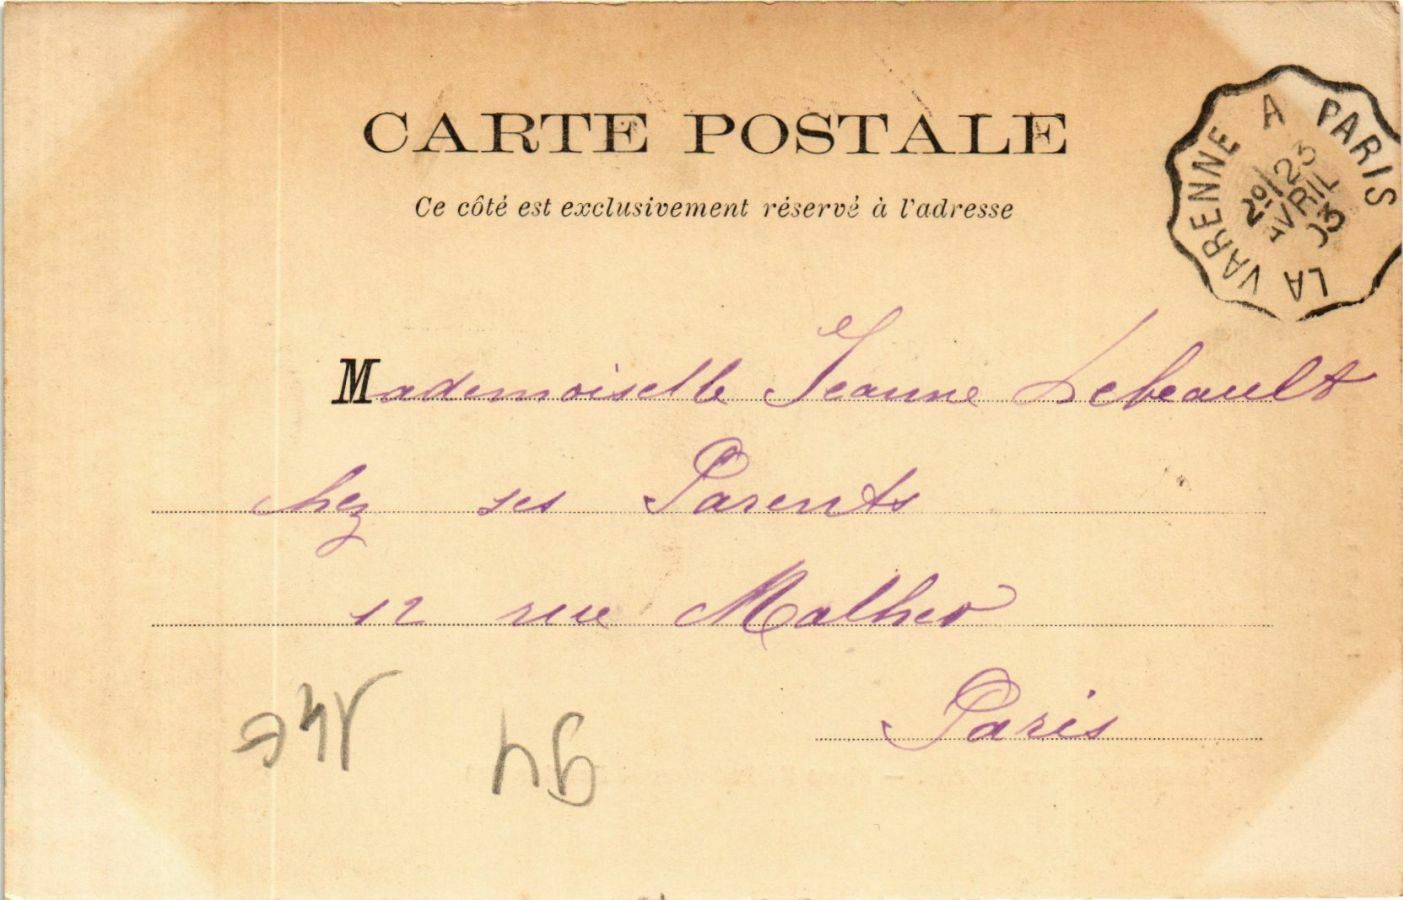 CARTE POSTALE
Ce côté est exclusivement réservé à l'adresse
LA VARENNE A PARIS
2º/23
AVRIL
03
Mademoiselle Jeanne Lebeault
chez ses Parents
12 rue Malher
Paris
94